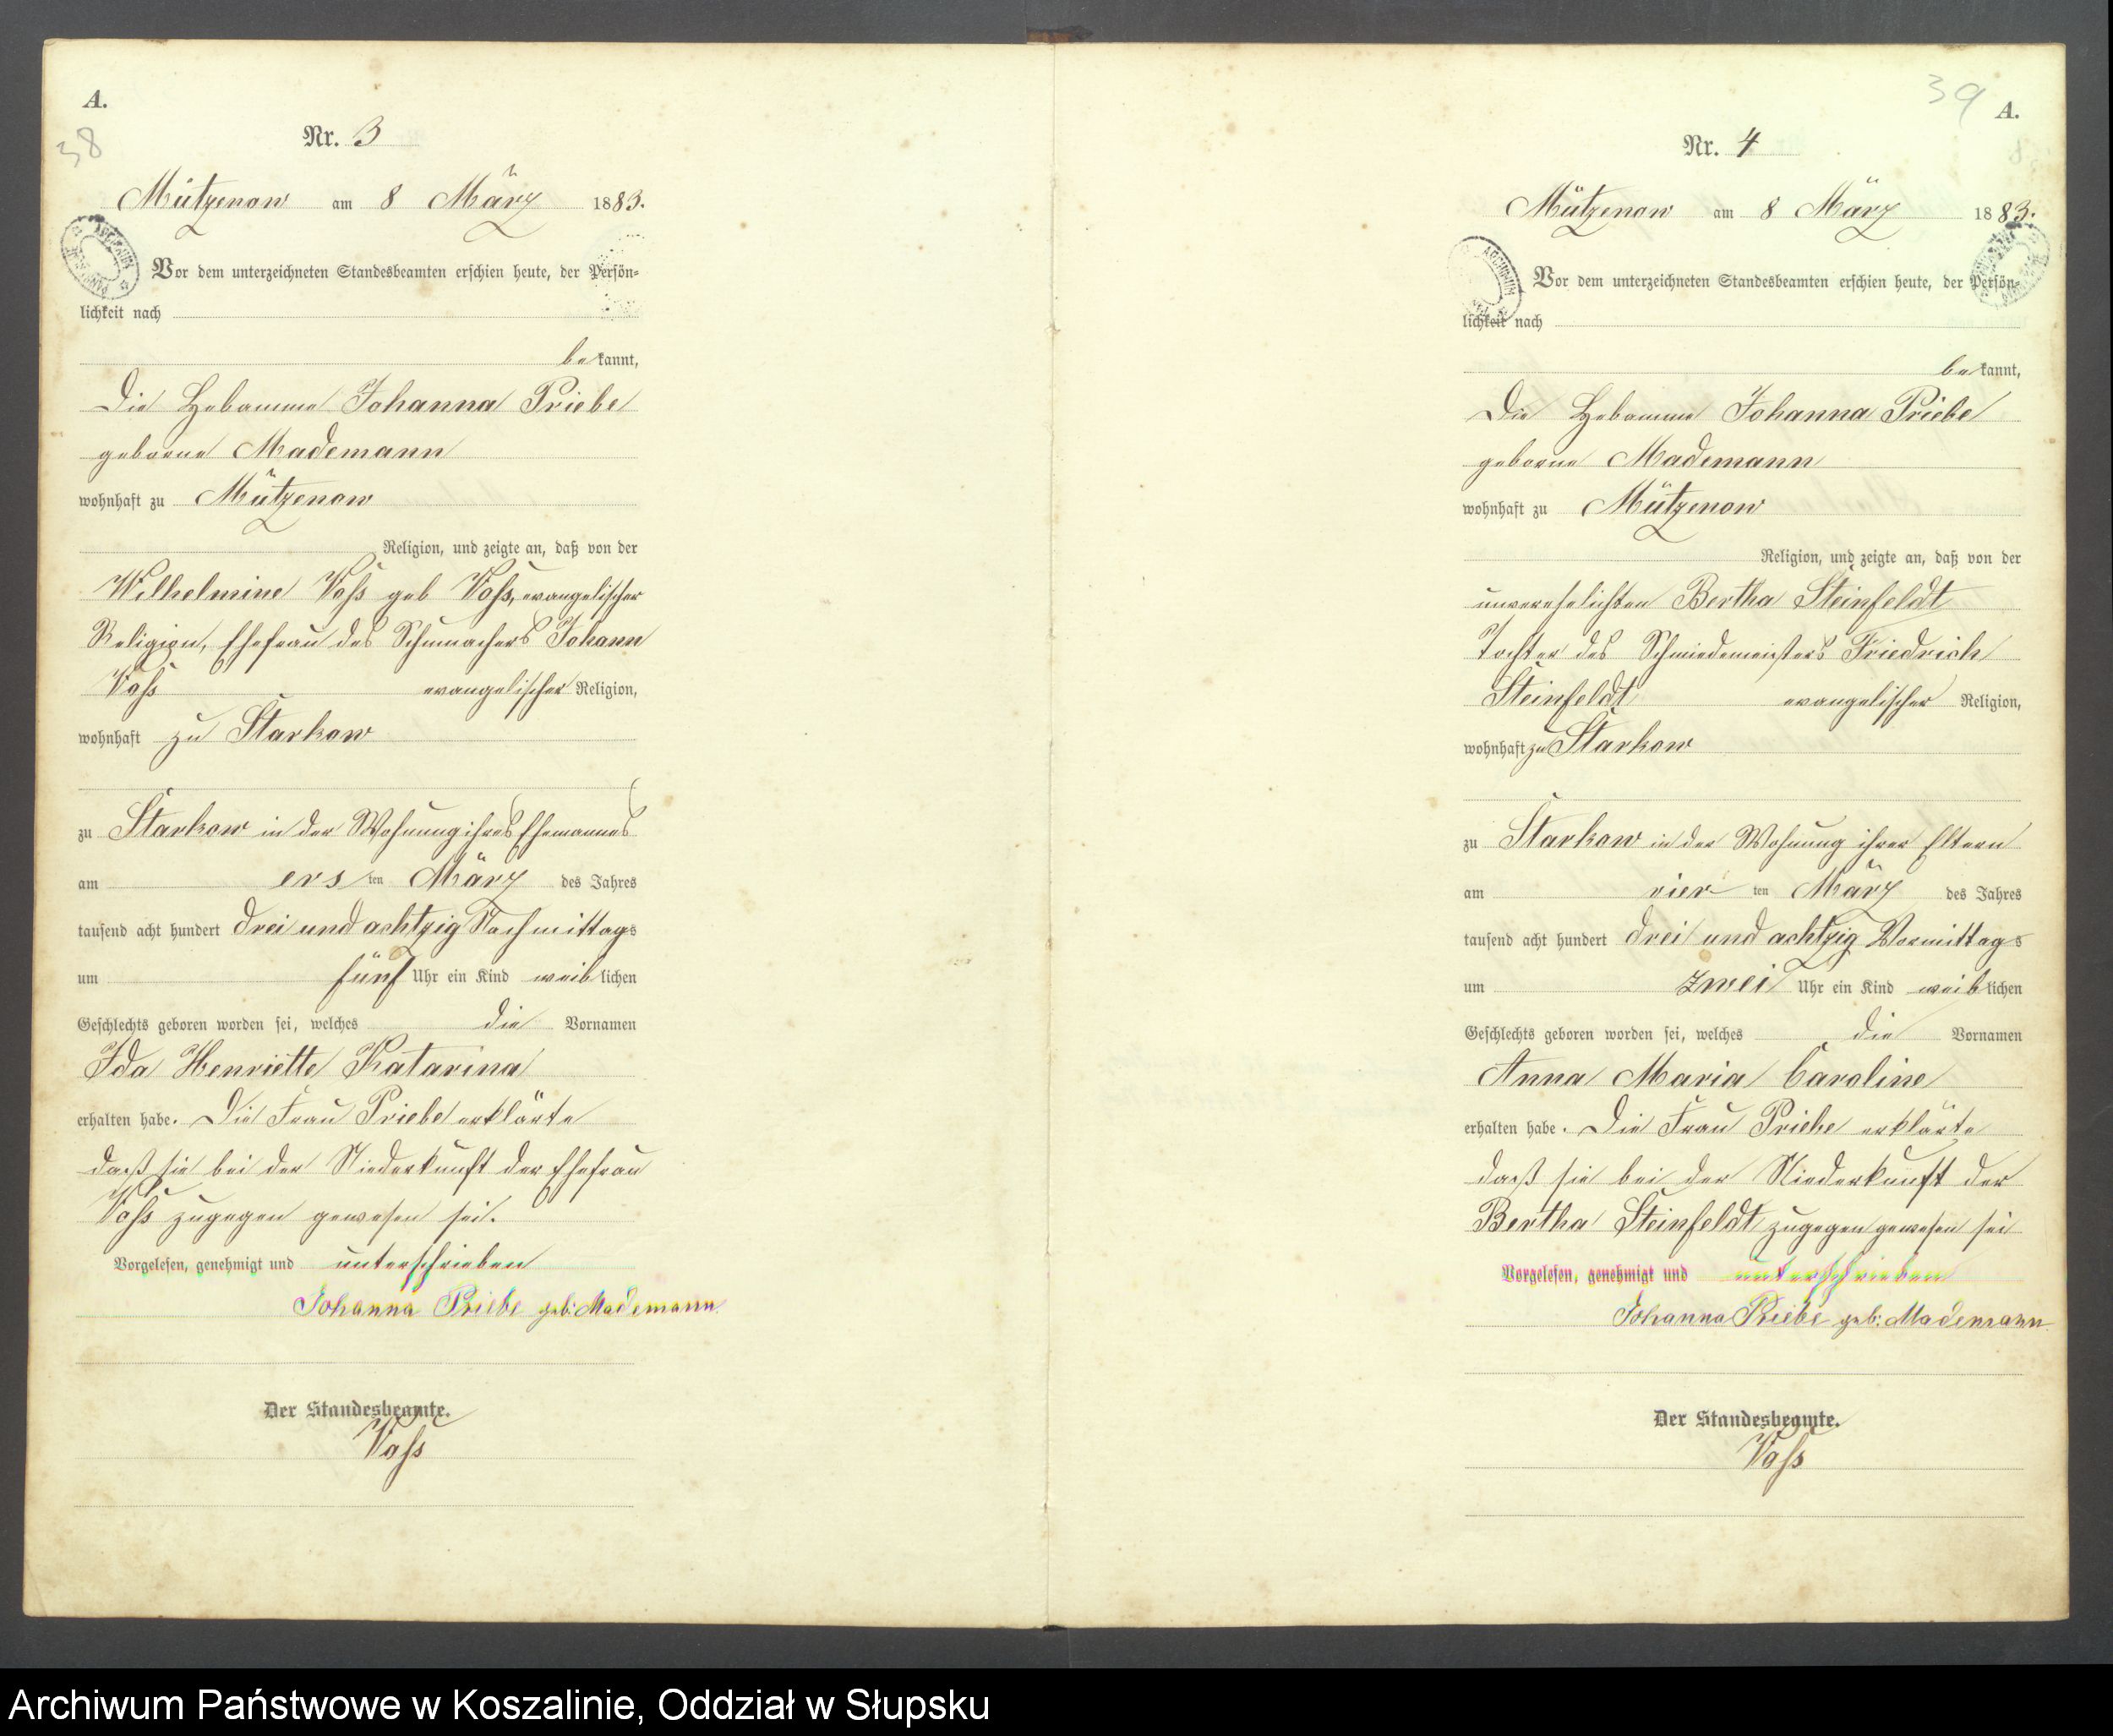 A.
38
Nr. 3
Mützenow am 8 März 1883.
Vor dem unterzeichneten Standesbeamten erschien heute, der Persön=
lichkeit nach
bekannt,
Die Hebamme Johanna Priebe
geborne Mademann
wohnhaft zu Mützenow
Religion, und zeigte an, daß von der
Wilhelmine Voss geb Voss, evangelischer
Religion, Ehefrau des Schumachers Johann
Voss evangelischer Religion,
wohnhaft zu Starkow
zu Starkow in der Wohnung ihres Ehemannes
am ersten März des Jahres
tausend acht hundert drei und achtzig Nachmittags
um fünf Uhr ein Kind weiblichen
Geschlechts geboren worden sei, welches die Vornamen
Ida Henriette Katarina
erhalten habe. Die Frau Priebe erklärte
daß sie bei der Niederkunft der Ehefrau
Voss zugegen gewesen sei.
Vorgelesen, genehmigt und unterschrieben
Johanna Priebe geb: Mademann
Der Standesbeamte.
Voss
39
A.
Nr. 4
Mützenow am 8 März 1883.
Vor dem unterzeichneten Standesbeamten erschien heute, der Persön=
lichkeit nach
bekannt,
Die Hebamme Johanna Priebe
geborne Mademann
wohnhaft zu Mützenow
Religion, und zeigte an, daß von der
unverehelichten Bertha Steinfeldt
Tochter des Schmiedemeisters Friedrich
Steinfeldt evangelischer Religion,
wohnhaft zu Starkow
zu Starkow in der Wohnung ihrer Eltern
am vierten März des Jahres
tausend acht hundert drei und achtzig Vormittags
um zwei Uhr ein Kind weiblichen
Geschlechts geboren worden sei, welches die Vornamen
Anna Maria Caroline
erhalten habe. Die Frau Priebe erklärte
daß sie bei der Niederkunft der
Bertha Steinfeldt zugegen gewesen sei
Vorgelesen, genehmigt und unterschrieben
Johanna Priebe geb: Mademann
Der Standesbeamte.
Voss
Archiwum Państwowe w Koszalinie, Oddział w Słupsku